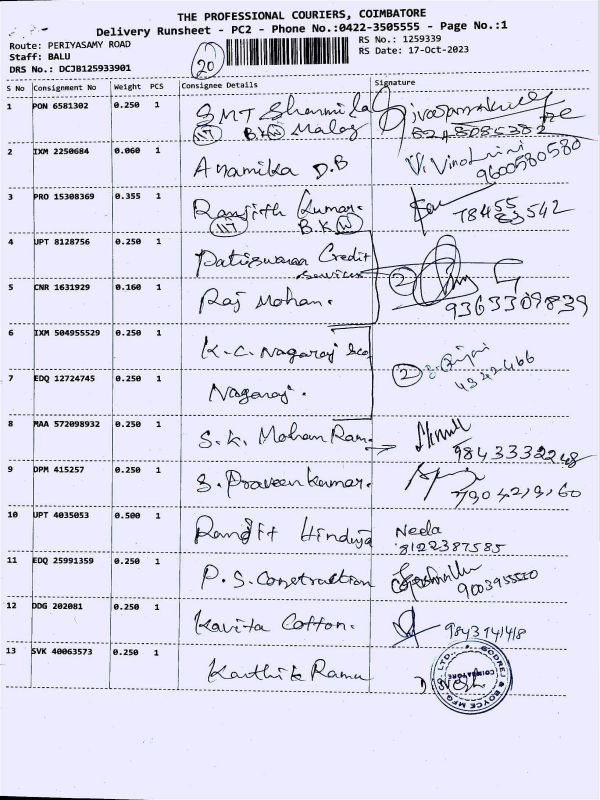 THE PROFESSIONAL COURIERS, COIMBATORE
Delivery Runsheet - PC2 - Phone No.:0422-3505555 - Page No.:1
Route: PERIYASAMY ROAD
Staff: BALU
DRS No.: DCJB125933901
20
RS No.: 1259339
RS Date: 17-Oct-2023
S No Consignment No Weight PCS Consignee Details Signature
1 PON 6581302 0.250 1 SMT Shanmila
117 B.K.W Malag
2 IXM 2250684 0.060 1 Anamika D.B
9600580580
3 PRO 15308369 0.355 1 Ranjith Kumar.
117 B.K.W
78455 63542
4 UPT 8128756 0.250 1 Patiswaraa Credit
Services
2
5 CNR 1631929 0.160 1 Raj Mohan.
9365309839
6 IXM 504955529 0.250 1 K.C. Nagaraj &co
2
4342466
7 EDQ 12724745 0.250 1 Nagaraj.
8 MAA 572098932 0.250 1 S.K. Mohan Ram.
9843332248
9 DPM 415257 0.250 1 S. Praveen kumar.
7904219160
10 UPT 4035053 0.500 1 Ranjit Hinduja Neda
8122387585
11 EDQ 25991359 0.250 1 P.S. Constraction
9003955520
12 DDG 202081 0.250 1 Kavita Cotton.
9843141418
13 SVK 40063573 0.250 1 Karthik Ramu
GODREJ & BOYCE MFG. LTD.
COIMBATORE